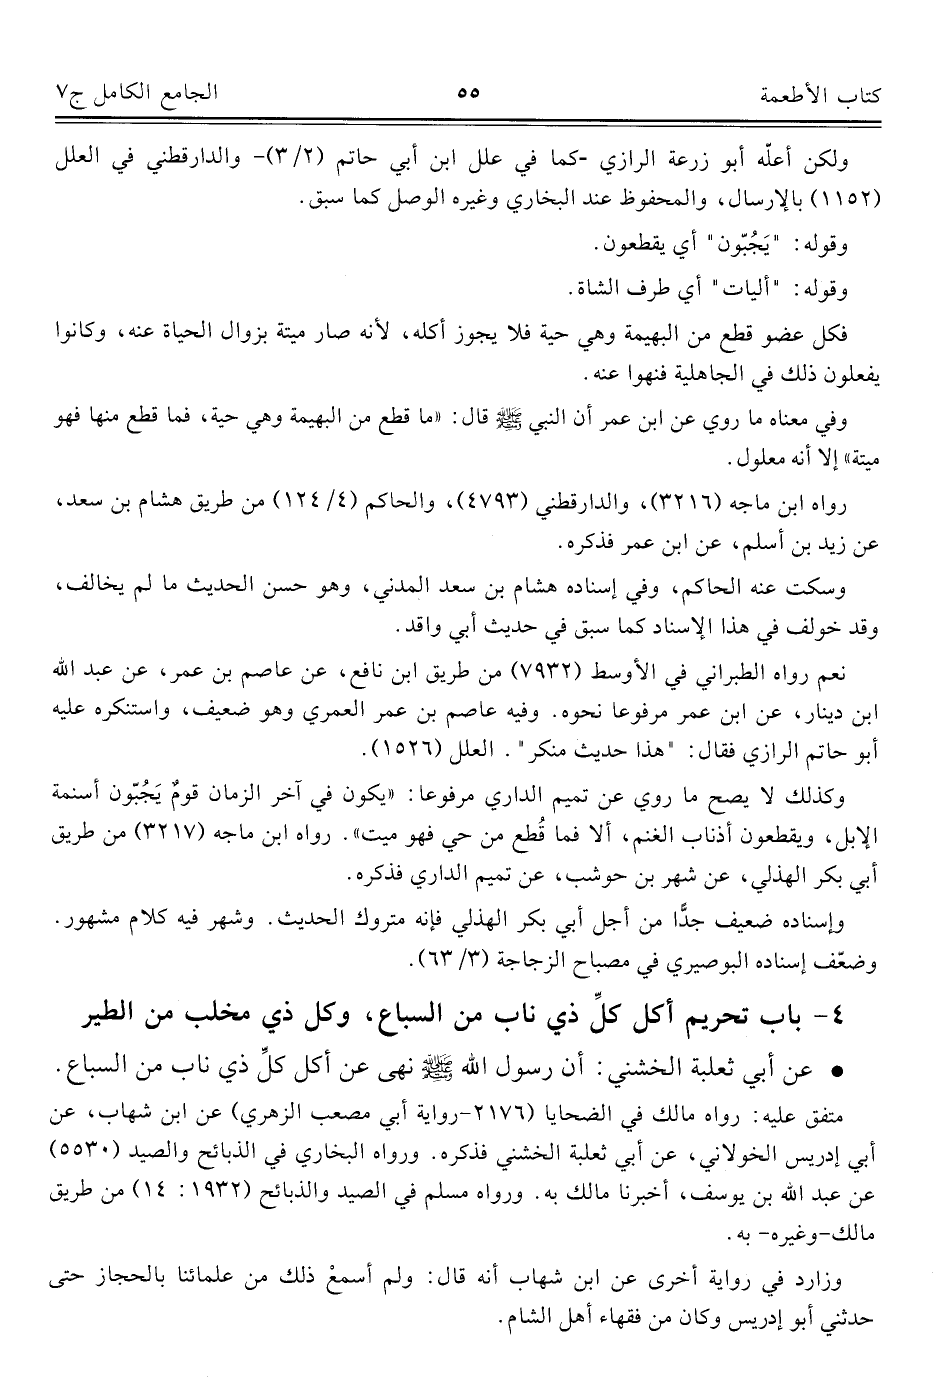 كتاب الأطعمة ٥٥ الجامع الكامل ج٧
ولكن أعلّه أبو زرعة الرازي -كما في علل ابن أبي حاتم (٣/٢)- والدارقطني في العلل
(١١٥٢) بالإرسال، والمحفوظ عند البخاري وغيره الوصل كما سبق.
وقوله: "يَجُبّون" أي يقطعون.
وقوله: "أليات" أي طرف الشاة.
فكل عضو قطع من البهيمة وهي حية فلا يجوز أكله، لأنه صار ميتة بزوال الحياة عنه، وكانوا
يفعلون ذلك في الجاهلية فنهوا عنه.
وفي معناه ما روي عن ابن عمر أن النبي ﷺ قال: «ما قطع من البهيمة وهي حية، فما قطع منها فهو
ميتة» إلا أنه معلول.
رواه ابن ماجه (٣٢١٦)، والدارقطني (٤٧٩٣)، والحاكم (٤/ ١٢٤) من طريق هشام بن سعد،
عن زيد بن أسلم، عن ابن عمر فذكره.
وسكت عنه الحاكم، وفي إسناده هشام بن سعد المدني، وهو حسن الحديث ما لم يخالف،
وقد خولف في هذا الإسناد كما سبق في حديث أبي واقد.
نعم رواه الطبراني في الأوسط (٧٩٣٢) من طريق ابن نافع، عن عاصم بن عمر، عن عبد الله
ابن دينار، عن ابن عمر مرفوعا نحوه. وفيه عاصم بن عمر العمري وهو ضعيف، واستنكره عليه
أبو حاتم الرازي فقال: "هذا حديث منكر". العلل (١٥٢٦).
وكذلك لا يصح ما روي عن تميم الداري مرفوعا: «يكون في آخر الزمان قومٌ يَجُبّون أسنمة
الإبل، ويقطعون أذناب الغنم، ألا فما قُطع من حي فهو ميت». رواه ابن ماجه (٣٢١٧) من طريق
أبي بكر الهذلي، عن شهر بن حوشب، عن تميم الداري فذكره.
وإسناده ضعيف جدًّا من أجل أبي بكر الهذلي فإنه متروك الحديث. وشهر فيه كلام مشهور.
وضعّف إسناده البوصيري في مصباح الزجاجة (٣/ ٦٣).
٤- باب تحريم أكل كلِّ ذي ناب من السباع، وكل ذي مخلب من الطير
● عن أبي ثعلبة الخشني: أن رسول الله ﷺ نهى عن أكل كلِّ ذي ناب من السباع.
متفق عليه: رواه مالك في الضحايا (٢١٧٦-رواية أبي مصعب الزهري) عن ابن شهاب، عن
أبي إدريس الخولاني، عن أبي ثعلبة الخشني فذكره. ورواه البخاري في الذبائح والصيد (٥٥٣٠)
عن عبد الله بن يوسف، أخبرنا مالك به. ورواه مسلم في الصيد والذبائح (١٩٣٢: ١٤) من طريق
مالك-وغيره- به.
وزارد في رواية أخرى عن ابن شهاب أنه قال: ولم أسمعْ ذلك من علمائنا بالحجاز حتى
حدثني أبو إدريس وكان من فقهاء أهل الشام.